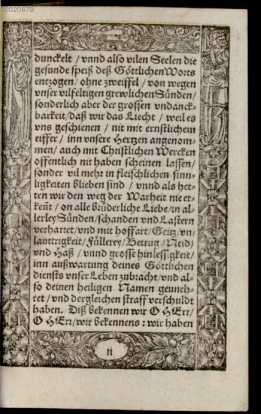 dunckelt / vnnd also vilen Seelen die
gesunde speiß deß Göttlichen Worts
entzogen / ohne zweiffel / von wegen
vnser vilfeltigen grewlichen Sünden /
sonderlich aber der grossen vndanck-
barkeit / daß wir das Liecht / weil es
vns geschienen / nit mit ernstlichem
eiffer / inn vnsere Hertzen angenom-
men / auch mit Christlichen Wercken
offentlich nit haben scheinen lassen /
sonder vil mehr in fleischlichen sinn-
ligkeiten blieben sind / vnnd als het-
ten wir den weg der Warheit nie er-
kent / on alle brüderliche Liebe / in al-
lerley Sünden / schanden vnd Lastern
verharret / vnd mit hoffart / Geitz / vn-
lautrigkeit / Füllerey / Betrug / Neid /
vnd Haß / vnnd grosse hinlessigkeit /
inn außwartung deines Göttlichen
diensts vnser Leben zubracht / vnd al-
so deinen heiligen Namen geuneh-
ret / vnd dergleichen straff verschuldt
haben. Diß bekennen wir O HErr /
O HErr / wir bekennens : wir haben